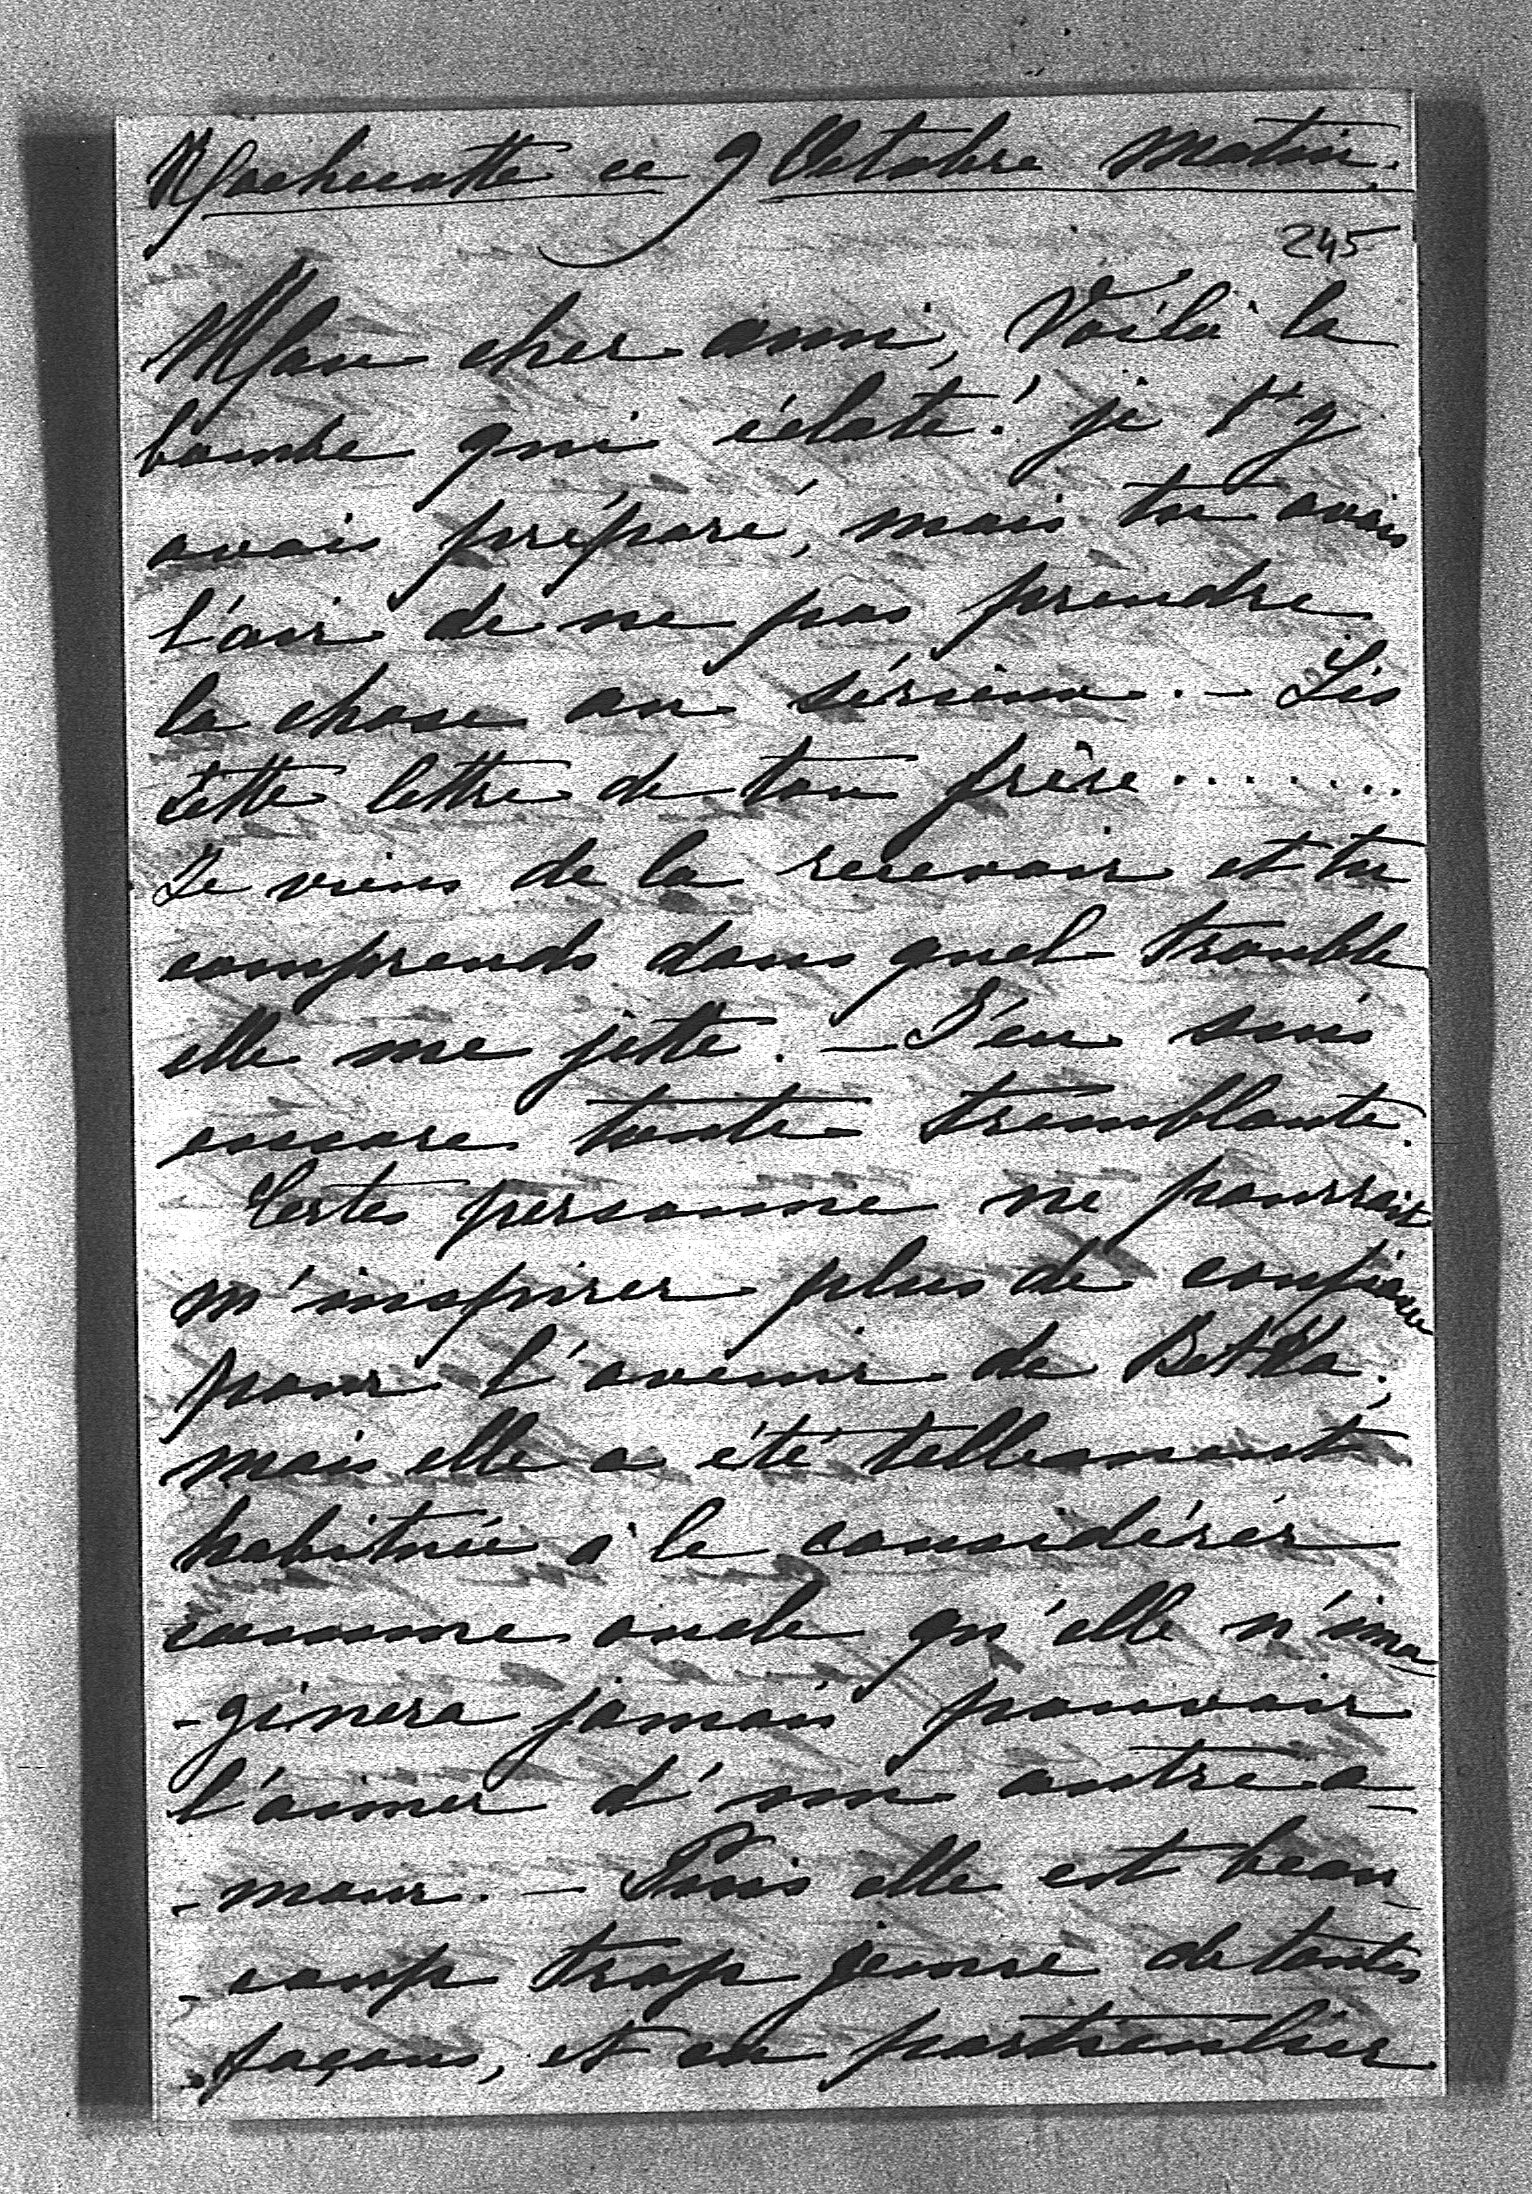 Rochecotte ce 9 Octobre matin.
245
Mon cher ami, Voilà la
bombe qui éclate! je t'y
avais préparé, mais tu avais
l'air de ne pas prendre
la chose au sérieux. – Lis
cette lettre de ton frère.......
Je viens de la recevoir et tu
comprends dans quel trouble
elle me jette. – J'en suis
encore toute tremblante.
Certes personne ne pourrait
m'inspirer plus de confiance
pour l'avenir de Betka;
mais elle a été tellement
habituée à le considérer
comme oncle qu'elle n'ima
-ginera jamais pouvoir
l'aimer d'un autre a-
-mour. – Puis elle est beau-
-coup trop jeune de toutes
façons, et en particulier